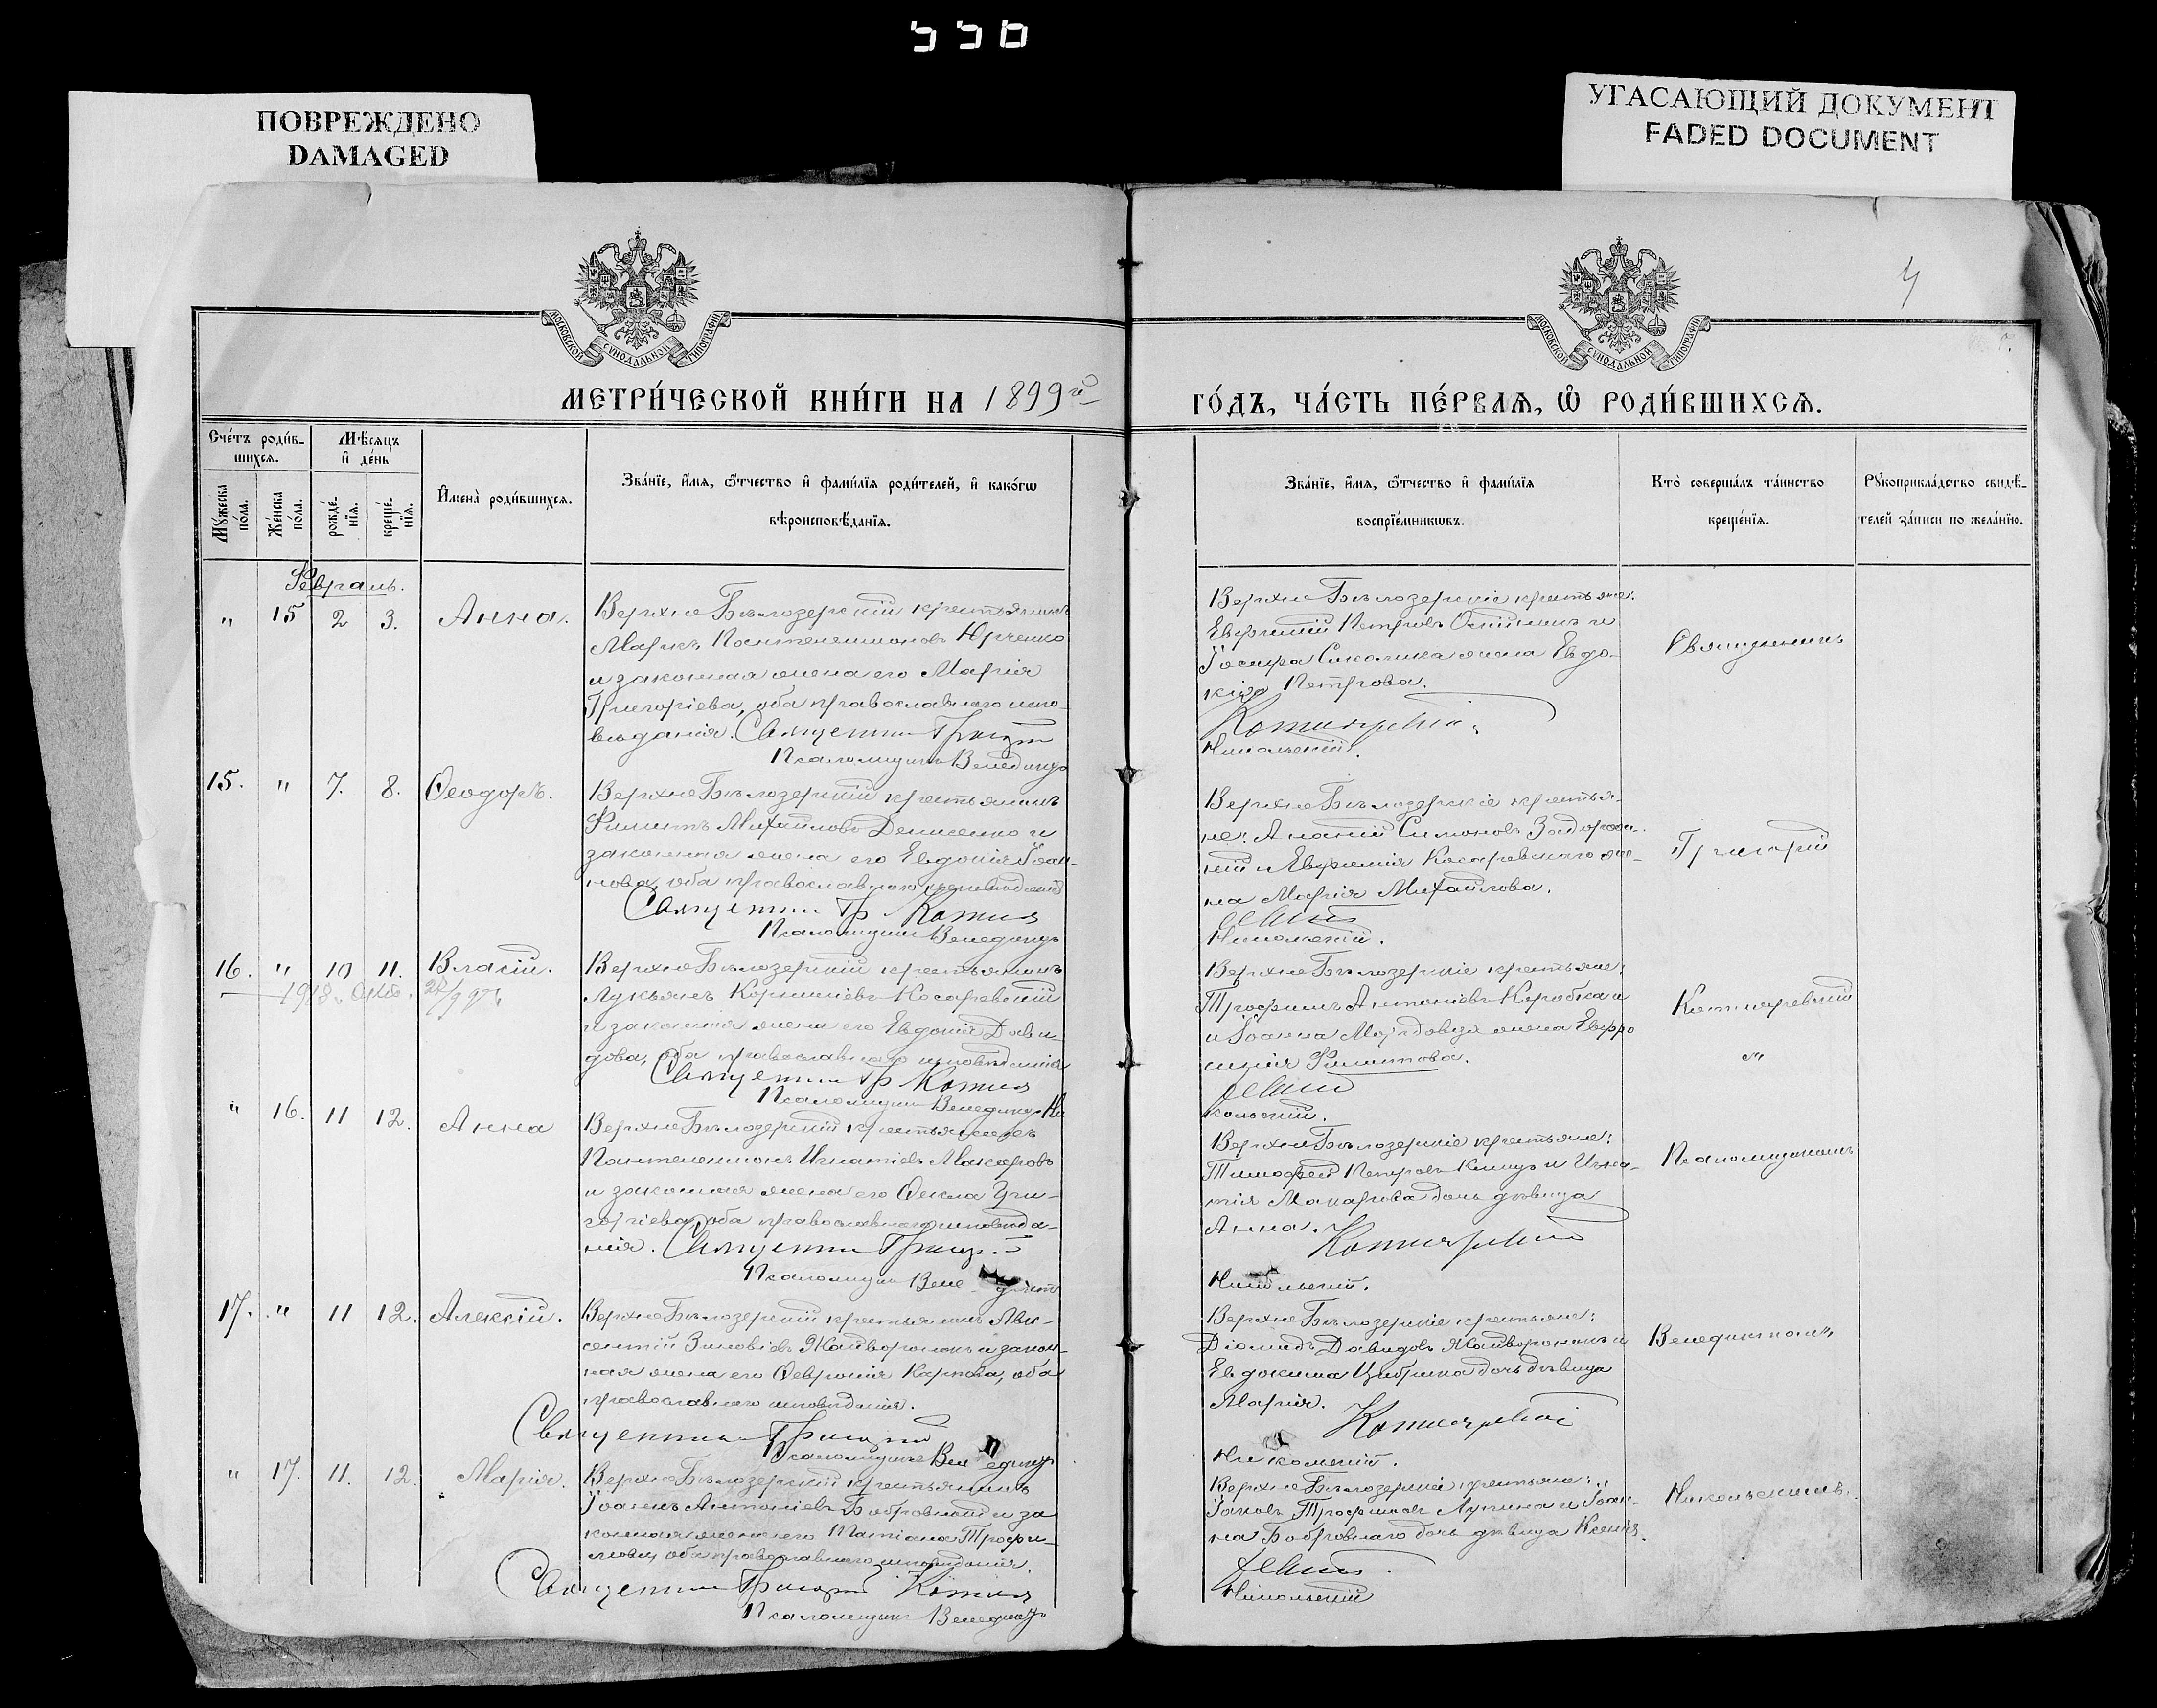 556
ПОВРЕЖДЕНО
DAMAGED
УГАСАЮЩИЙ ДОКУМЕНТ
FADED DOCUMENT
4
МОСКОВСКОЙ СѴНОДАЛЬНОЙ ТИПОГРАФІИ
МОСКОВСКОЙ СѴНОДАЛЬНОЙ ТИПОГРАФІИ
МЕТРИ́ЧЕСКОЙ КНИ́ГИ НА 1899й
ГО́ДЪ, ЧА́СТЬ ПЕ́РВАѦ, Ѡ РОДИ́ВШИХСѦ.
Сче́тъ роди́в-
шихсѧ.
Мѣ́сѧцъ
и҆ де́нь
Мꙋ́жеска
по́ла.
Же́нска
по́ла.
рожде́-
нїѧ.
креще́-
нїѧ.
И҆мена̀ роди́вшихсѧ.
Зва́нїе, и҆́мѧ, ѿтчество и҆ фами́лїѧ роди́телей, и҆ како́гѡ
вѣроисповѣ́данїѧ.
Зва́нїе, и҆́мѧ, ѿтчество и҆ фами́лїѧ
воспрїе́мникѡвъ.
Кто̀ соверша́лъ та́инство
креще́нїѧ.
Рꙋкоприкла́дство свидѣ́-
телей за́писи по жела́нїю.
Февраль.
" 15 2 3. Анна.
Верхне Бѣлозерскій крестьянинъ
Маркъ Пантелеимоновъ Юрченко
и законная жена его Марія
Григоріева, оба православнаго испо-
вѣданія. Священникъ Григорій
Псаломщикъ Венедиктъ
Верхне Бѣлозерскіе крестьяне:
Евфимій Петровъ и
Іосифа жена Евдо-
кія Петрова.
Котляревскій.
Никольскій.
Священникъ
15. " 7. 8. Ѳеодоръ.
Верхне Бѣлозерскій крестьянинъ
Филиппъ Михайловъ Денисенко и
законная жена его Евдокія Іоан-
нова, оба православнаго исповѣданія
Священникъ Гр. Котля
Псаломщикъ Венедиктъ
Верхне Бѣлозерскіе крестья-
не: Ананій Симоновъ Задорож-
ній и Евфимія Косаревскаго же-
на Марія Михайлова.
ревскій
Никольскій.
Григорій
16. " 10 11. Власій.
Верхне Бѣлозерскій крестьянинъ
Лукьянъ Корниліевъ Косаревскій
и законная жена его Евдокія Дави-
дова, оба православнаго исповѣданія
Священникъ Гр Котля
Псаломщикъ Венедиктъ Ни
Верхне Бѣлозерскіе крестьяне:
Трофимъ Антоніевъ Коробка и
и Іоанна жена Евфро
синія Филиппова.
ревскій
кольскій.
Котляревскій
"
" 16. 11 12. Анна
Верхне Бѣлозерскій крестьянинъ
Пантелеимонъ Игнатіевъ Макаровъ
и законная жена его Ѳекла Гри-
горіева, оба православнаго исповѣда-
нія. Священникъ Григорій
Псаломщикъ Венедиктъ
Верхне Бѣлозерскіе крестьяне:
Тимофей Петровъ и Игна-
тія Макарова дочь дѣвица
Анна. Котляревскій
Никольскій.
Псаломщикомъ
17. " 11 12. Алексій.
Верхне Бѣлозерскій крестьянинъ Авк-
сентій Зиновіевъ Жайворонокъ и закон-
ная жена его Ѳевронія Карпова, оба
православнаго исповѣданія.
Священникъ Григорій
Псаломщикъ Венедиктъ
Верхне Бѣлозерскіе крестьяне:
Діомидъ Давидовъ Жайворонокъ и
Евдокима дочь дѣвица
Марія. Котляревскій
Никольскій.
Венедиктомъ
" 17. 11. 12. Марія.
Верхне Бѣлозерскій крестьянинъ
Іоаннъ Антоніевъ Бобровскій и за
конная жена его Татіана Трофи-
мова, оба православнаго исповѣданія.
Священникъ Григорій Котля
Псаломщикъ Венедиктъ
Верхне Бѣлозерскіе крестьяне:
Іаковъ Трофимовъ и Іоан-
на Бобровскаго дочь дѣвица Ксенія.
ревскій.
Никольскій
Никольскимъ.